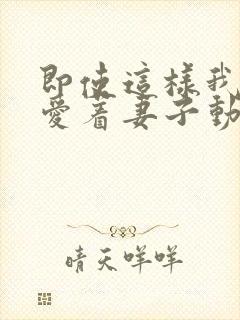 即使這樣我
愛着妻子動
晴天咩咩